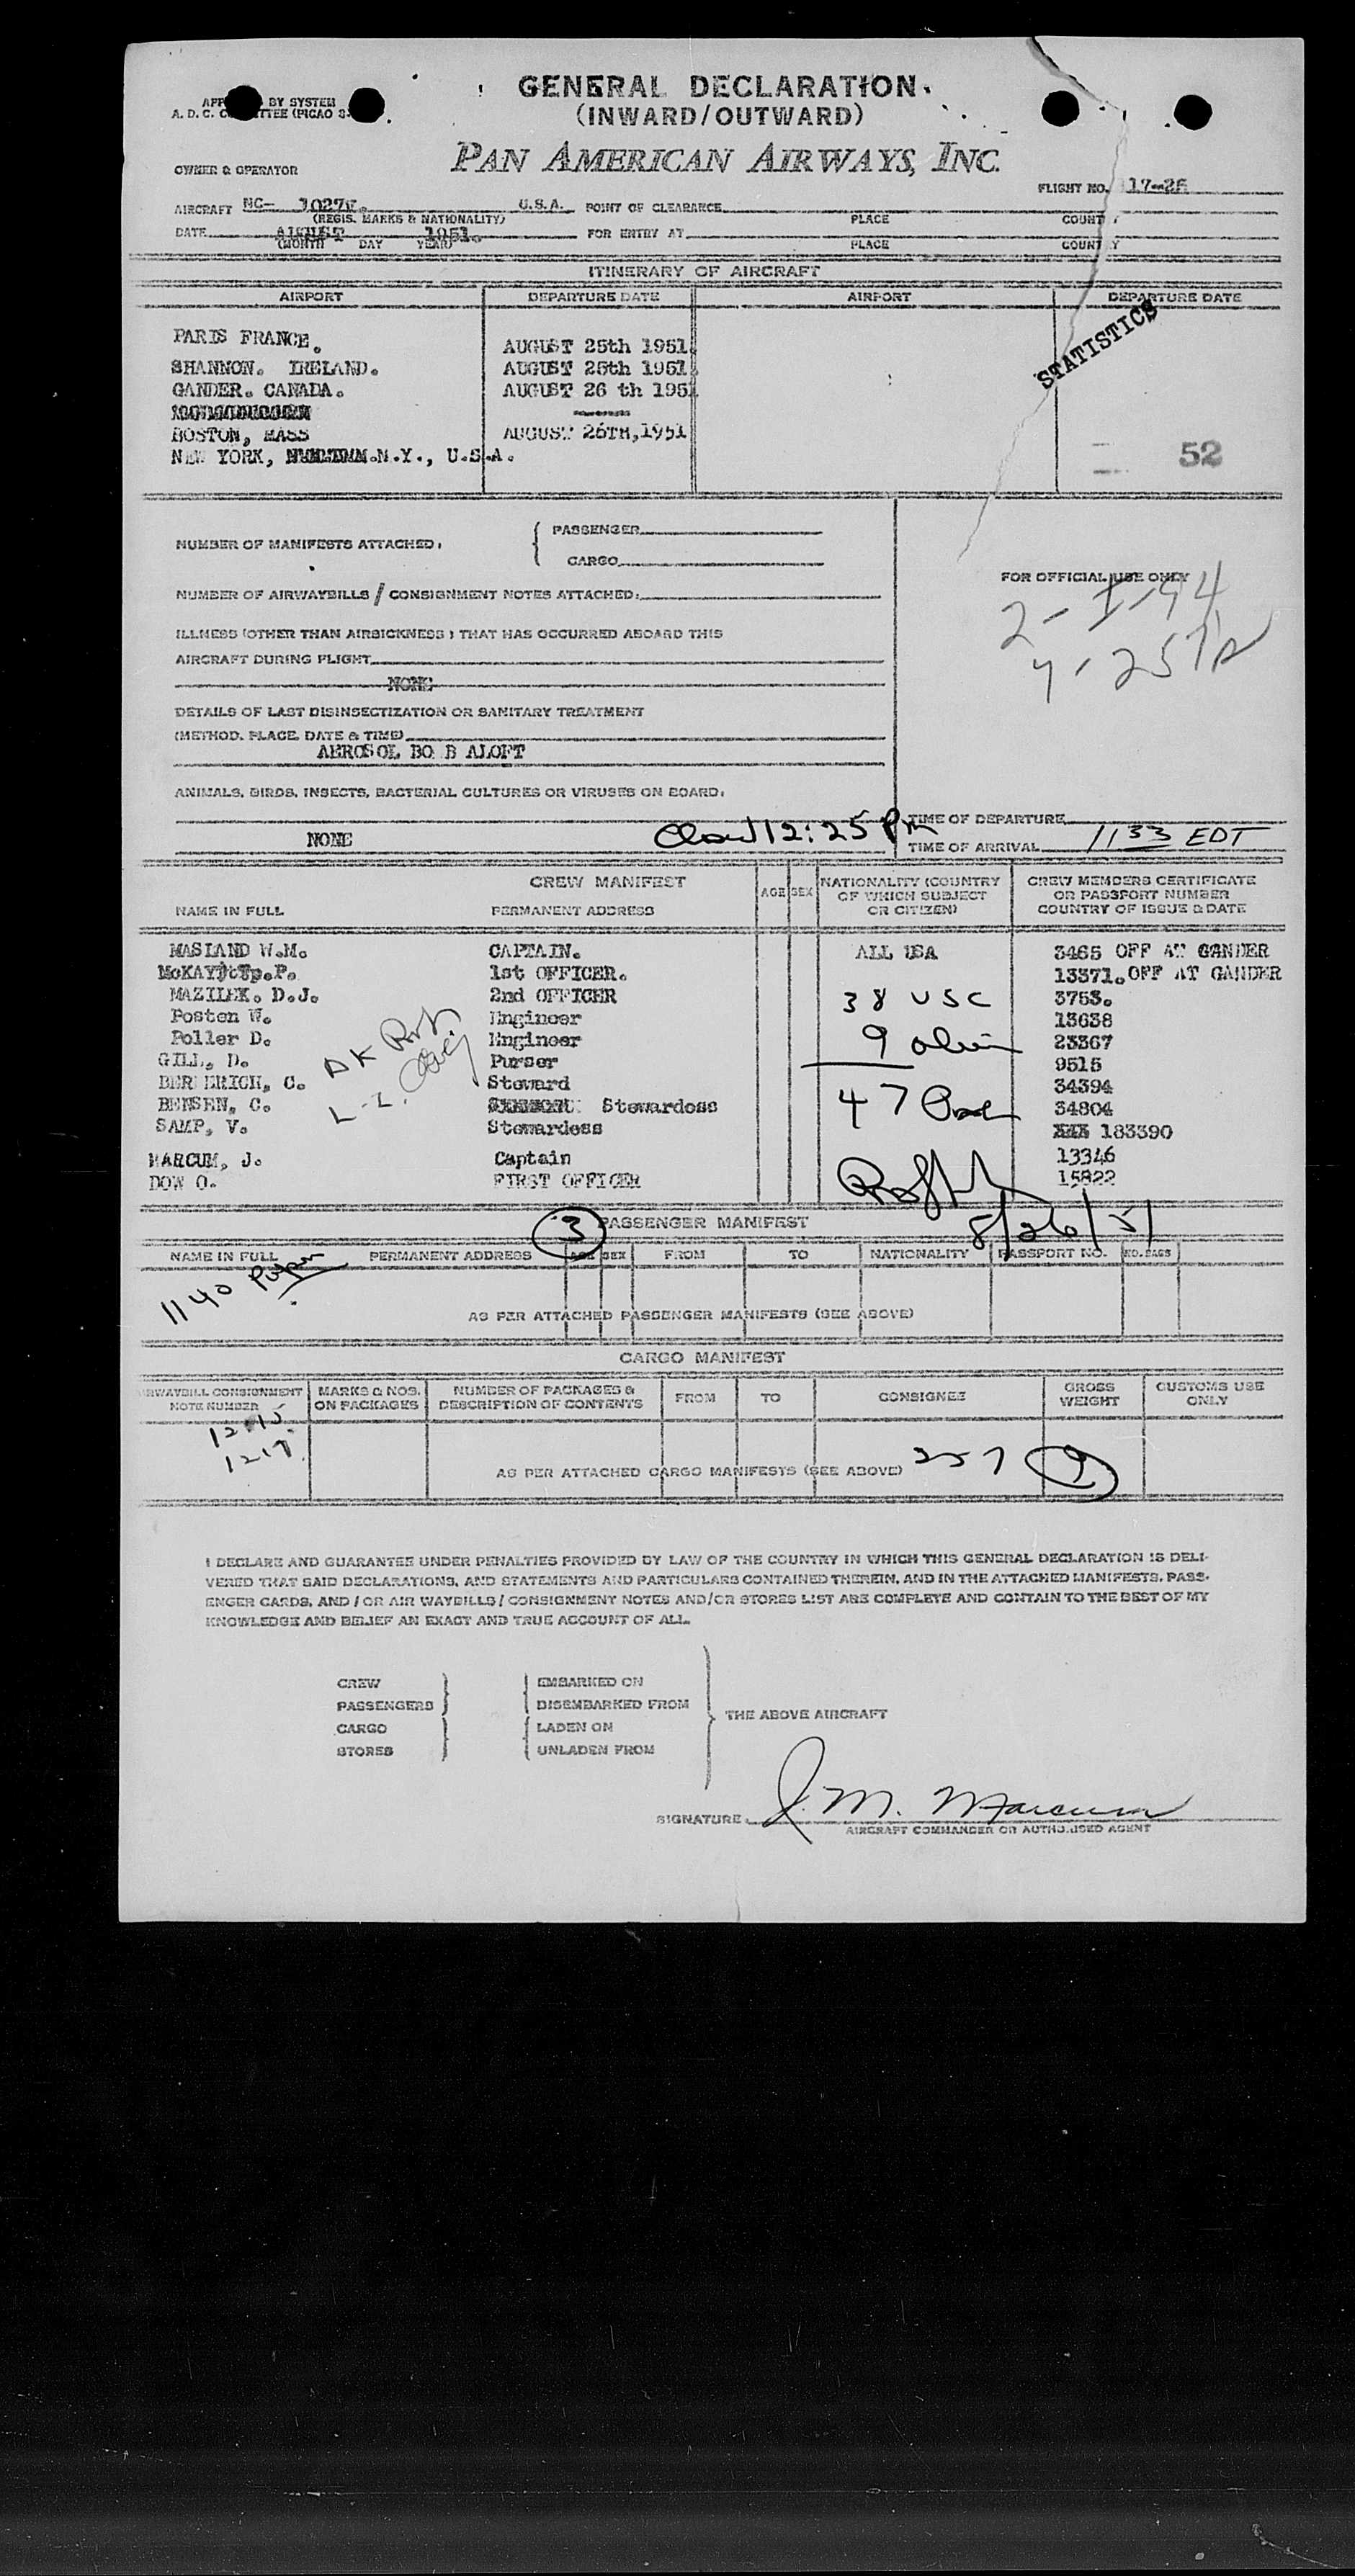 GENERAL DECLARATION.
(INWARD/OUTWARD)
BY SYSTEM
A. D. C. (PICAO
PAN AMERICAN AIRWAYS, INC.
OWNER & OPERATOR
FLIGHT NO. 17-26
AIRCRAFT NC- U.S.A. POINT OF CLEARANCE
(REGIS. MARKS & NATIONALITY) PLACE COUNTRY
DATE AUGUST 1951. FOR ENTRY AT
(MONTH DAY YEAR) PLACE COUNTRY
ITINERARY OF AIRCRAFT
AIRPORT DEPARTURE DATE AIRPORT DEPARTURE DATE
STATISTICS
PARIS FRANCE. AUGUST 25th 1951.
SHANNON. IRELAND. AUGUST 25th 1951.
GANDER. CANADA. AUGUST 26 th 1951
BOSTON, MASS AUGUST 26TH,1951
NEW YORK, N.Y., U.S.A.
52
NUMBER OF MANIFESTS ATTACHED. PASSENGER
CARGO
FOR OFFICIAL USE ONLY
2-I-94
NUMBER OF AIRWAYBILLS / CONSIGNMENT NOTES ATTACHED:
ILLNESS (OTHER THAN AIRSICKNESS) THAT HAS OCCURRED ABOARD THIS
AIRCRAFT DURING FLIGHT
NONE
DETAILS OF LAST DISINSECTIZATION OR SANITARY TREATMENT
(METHOD, PLACE, DATE & TIME)
AEROSOL BO B ALOFT
ANIMALS, BIRDS, INSECTS, BACTERIAL CULTURES OR VIRUSES ON BOARD.
TIME OF DEPARTURE
NONE 12:25 Pm
TIME OF ARRIVAL 1133 EDT
CREW MANIFEST
NAME IN FULL PERMANENT ADDRESS AGE SEX NATIONALITY (COUNTRY OF WHICH SUBJECT OR CITIZEN) CREW MEMBERS CERTIFICATE OR PASSPORT NUMBER COUNTRY OF ISSUE & DATE
MASLAND W.M. CAPTAIN. ALL USA 3465 OFF AT GANDER
McKAY P. 1st OFFICER. 13371. OFF AT GANDER
MAZILEK. D.J. 2nd OFFICER 38 USC 3753.
Posten W. Engineer 13638
Poller D. Engineer 9 23367
GILL, D. Purser 9515
C. Steward 34394
BENSEN, C. Stewardess 47 34804
SAMP, V. Stewardess 183390
MARCUM, J. Captain 13346
DOW O. FIRST OFFICER 15822
8/26/51
3 PASSENGER MANIFEST
NAME IN FULL PERMANENT ADDRESS AGE SEX FROM TO NATIONALITY PASSPORT NO. NO. BAGS
1140
AS PER ATTACHED PASSENGER MANIFESTS (SEE ABOVE)
CARGO MANIFEST
AIRWAYBILL CONSIGNMENT NOTE NUMBER MARKS & NOS. ON PACKAGES NUMBER OF PACKAGES & DESCRIPTION OF CONTENTS FROM TO CONSIGNEE GROSS WEIGHT CUSTOMS USE ONLY
1215
1217
AS PER ATTACHED CARGO MANIFESTS (SEE ABOVE) 257 9
I DECLARE AND GUARANTEE UNDER PENALTIES PROVIDED BY LAW OF THE COUNTRY IN WHICH THIS GENERAL DECLARATION IS DELI-
VERED THAT SAID DECLARATIONS, AND STATEMENTS AND PARTICULARS CONTAINED THEREIN, AND IN THE ATTACHED MANIFESTS, PASS-
ENGER CARDS, AND / OR AIR WAYBILLS / CONSIGNMENT NOTES AND/OR STORES LIST ARE COMPLETE AND CONTAIN TO THE BEST OF MY
KNOWLEDGE AND BELIEF AN EXACT AND TRUE ACCOUNT OF ALL.
CREW EMBARKED ON
PASSENGERS DISEMBARKED FROM
THE ABOVE AIRCRAFT
CARGO LADEN ON
STORES UNLADEN FROM
SIGNATURE. J. M. Marcum
AIRCRAFT COMMANDER OR AUTHORISED AGENT